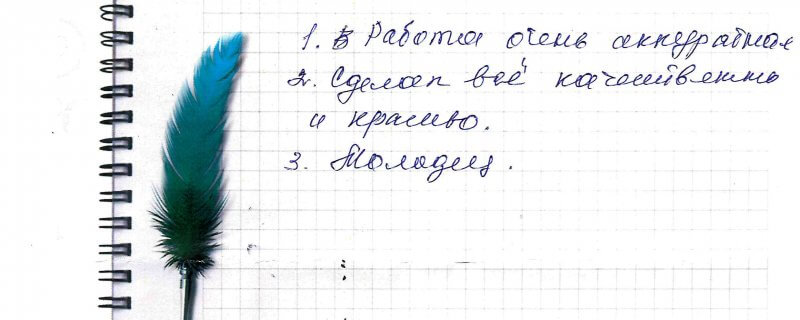 1. Работа очень аккуратная
2. Сделал всё качественно
и красиво.
3. Молодец.